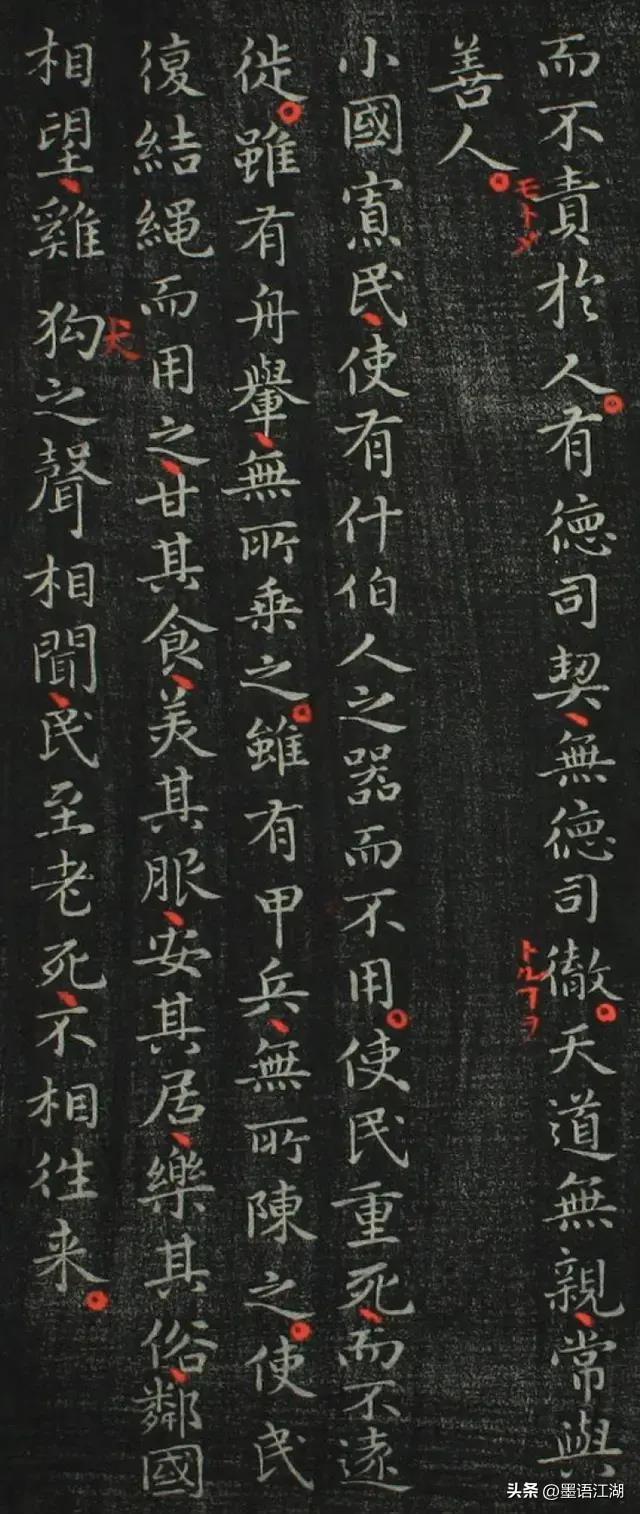 而不責於人。有德司契、無德司徹。天道無親、常與
モトメ
トルヿヲ
善人。
小國寡民、使有什伯人之器而不用。使民重死、而不遠
徙。雖有舟轝、無所乗之。雖有甲兵、無所陳之。使民
復結縄而用之、甘其食、美其服、安其居、樂其俗、鄰國
相望、雞狗之聲相聞、民至老死、不相往来。
犬
头条 @墨语江湖